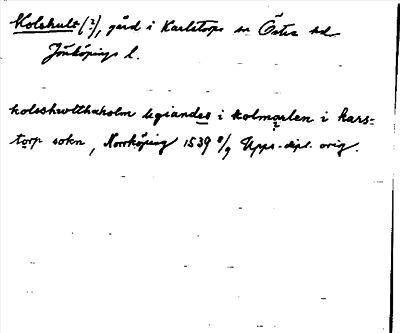 Kolshult (?), gård i Karlstorps sn Östra hd
Jönköpings l.
kolsshwlthaholm ligiandes i kolmarlen i kars=
torp sokn, Norrköping 1539 8/9 Upps. dipl. orig.